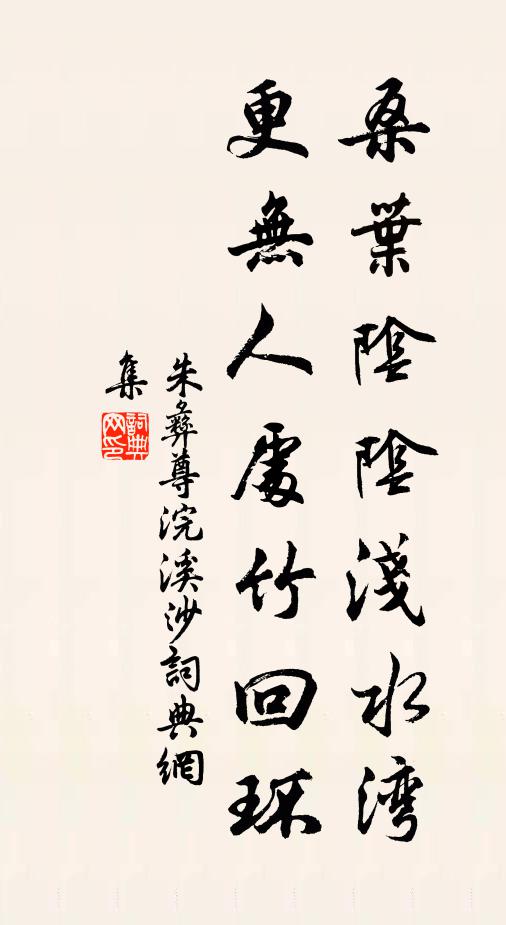 桑葉陰陰淺水湾
更無人處竹回环
朱彝尊浣溪沙詞典網
集
詞典網印